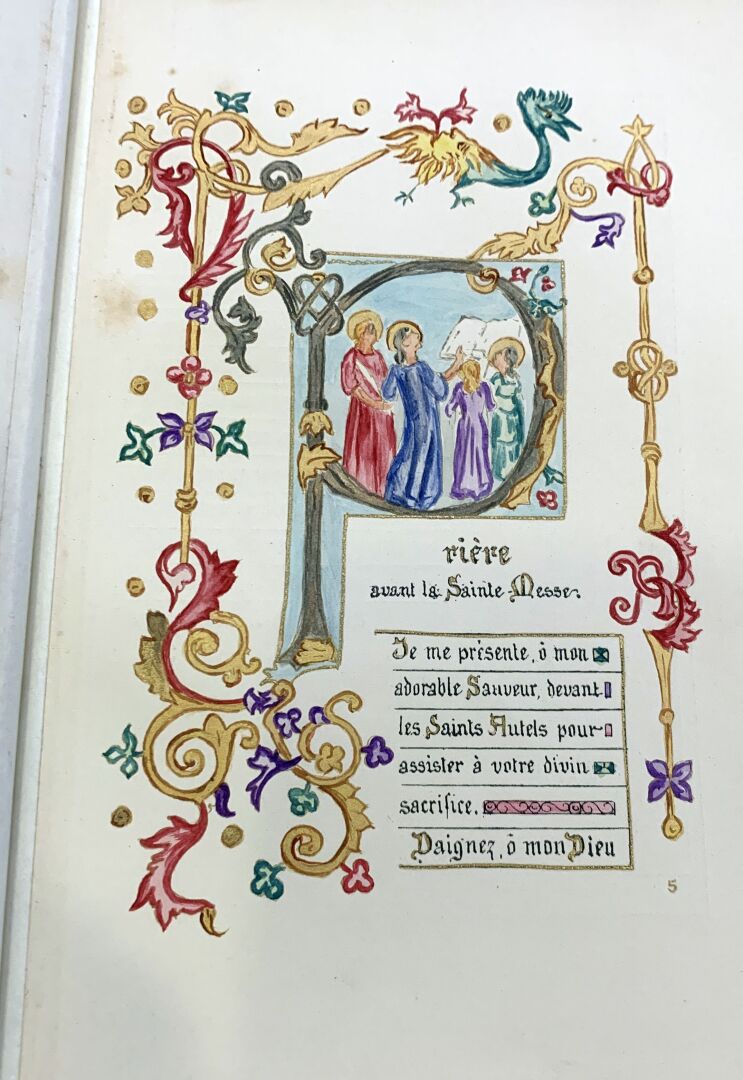 Prière
avant la Sainte-Messe.
Je me présente, ô mon
adorable Sauveur, devant
les Saints Autels pour
assister à votre divin
sacrifice.
Daignez, ô mon Dieu
5